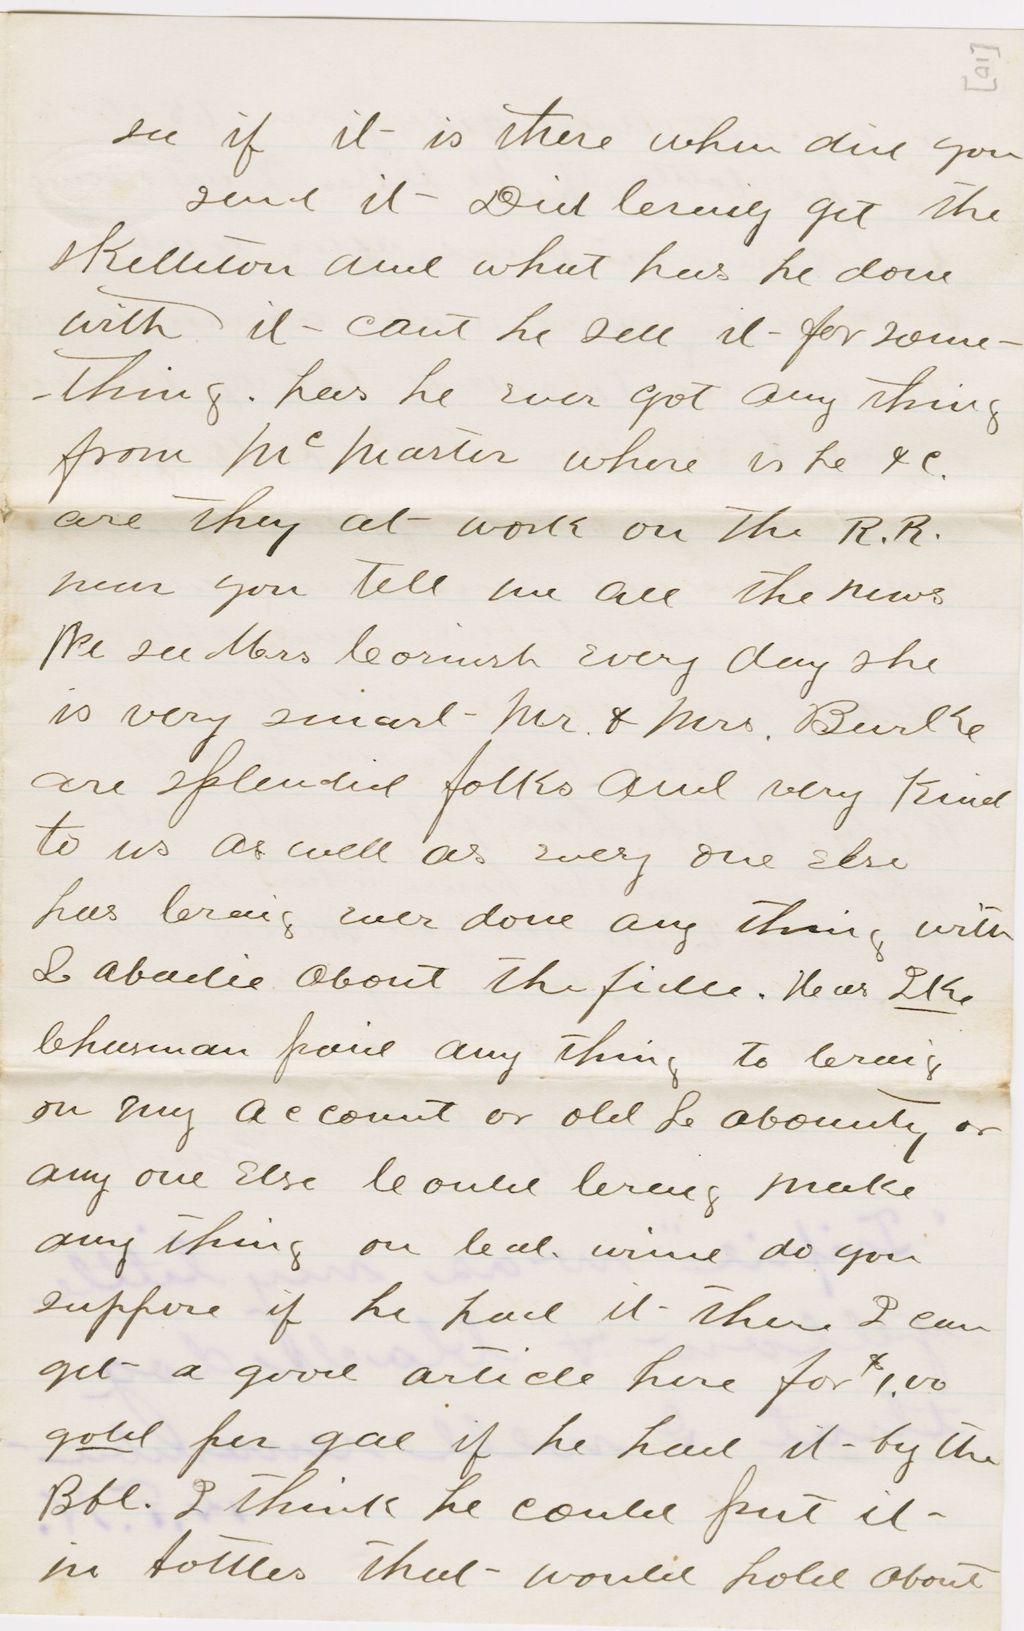 [10]
see if it is there when did you
send it - Did Craig get the
skelliton and what has he done
with it - cant he sell it - for some-
-thing. has he ever got any thing
from McMaster where is he &c.
are they at work on the R.R.
near you tell me all the news
We see Mrs Cornish every day she
is very smart - Mr. & Mrs. Burke
are splendid folks and very kind
to us as well as every one else
has Craig ever done any thing with
Labadie about the fiddle. Has Ike
Chasman paid any thing to Craig
on my account or old Labounty or
any one else Could Craig make
any thing on Cal. wine do you
suppose if he had it there I can
get a good article here for $1.00
gold per gal if he had it - by the
Bbl. I think he could put it -
in bottles that would hold about